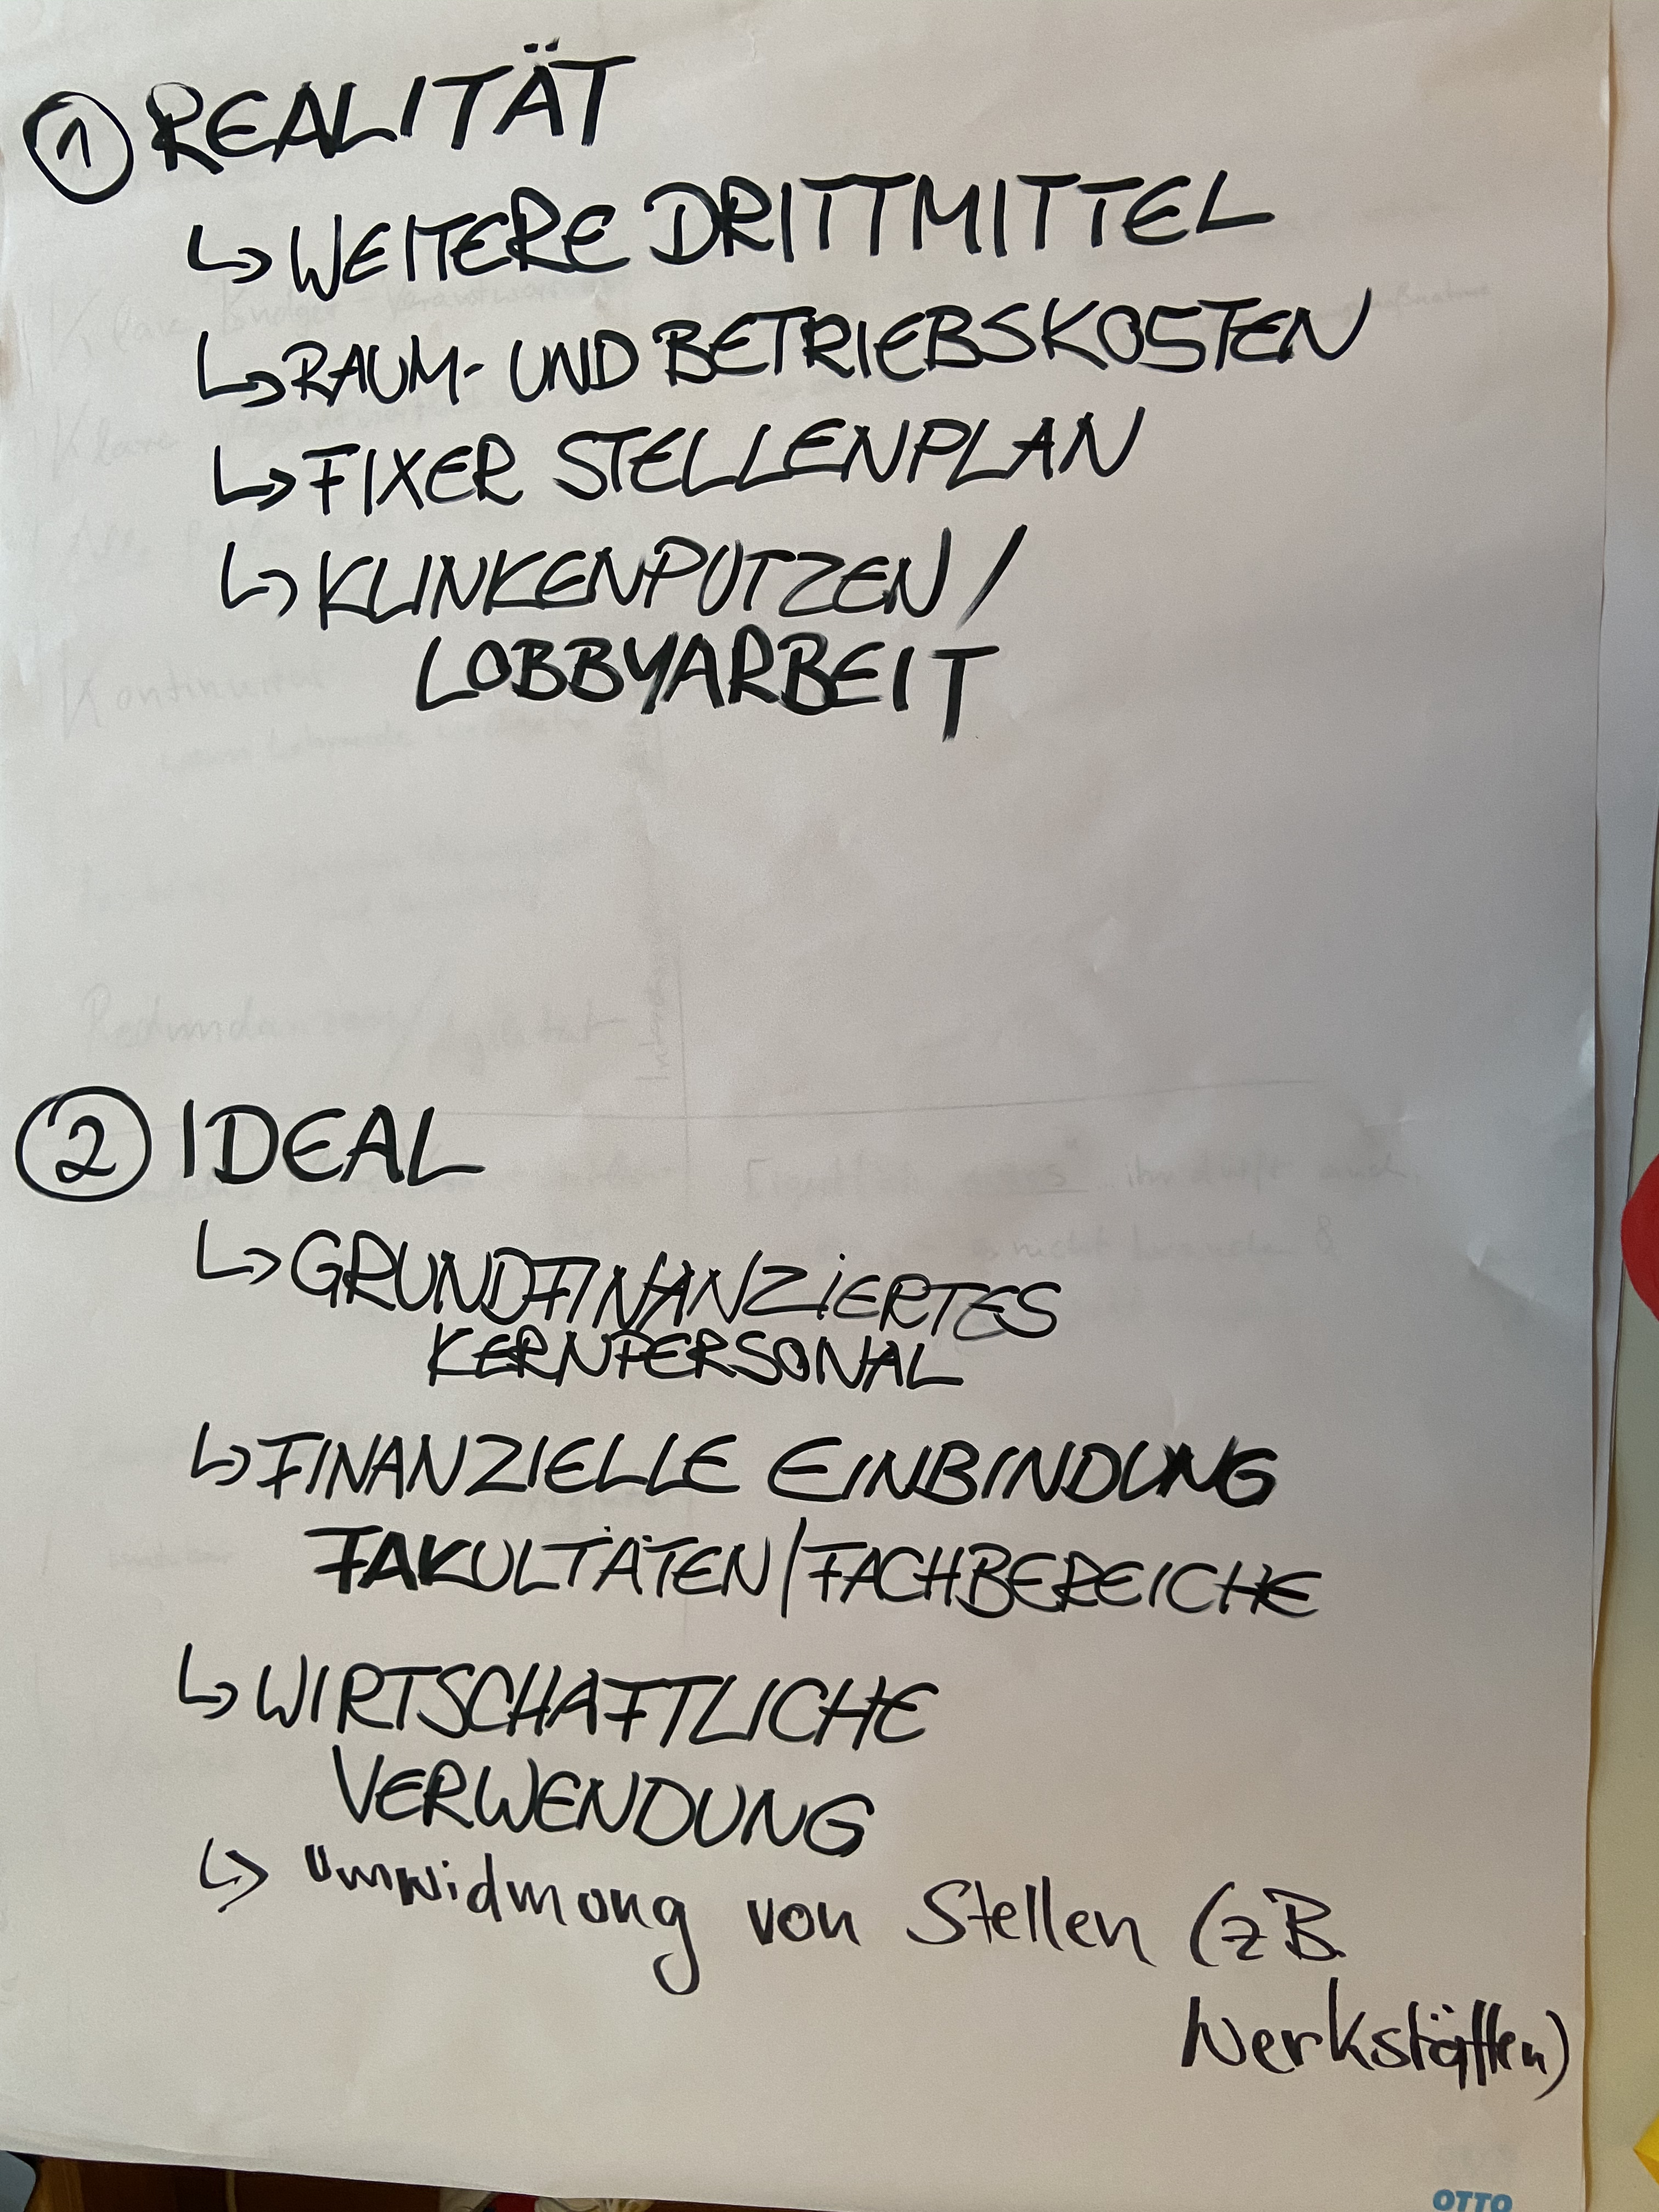 ① REALITÄT
↳ WEITERE DRITTMITTEL
↳ RAUM- UND BETRIEBSKOSTEN
↳ FIXER STELLENPLAN
↳ KLINKENPUTZEN /
LOBBYARBEIT
② IDEAL
↳ GRUNDFINANZIERTES
KERNPERSONAL
↳ FINANZIELLE EINBINDUNG
FAKULTÄTEN/FACHBEREICHE
↳ WIRTSCHAFTLICHE
VERWENDUNG
↳ Umwidmung von Stellen (zB.
Werkstätten)
OTTO